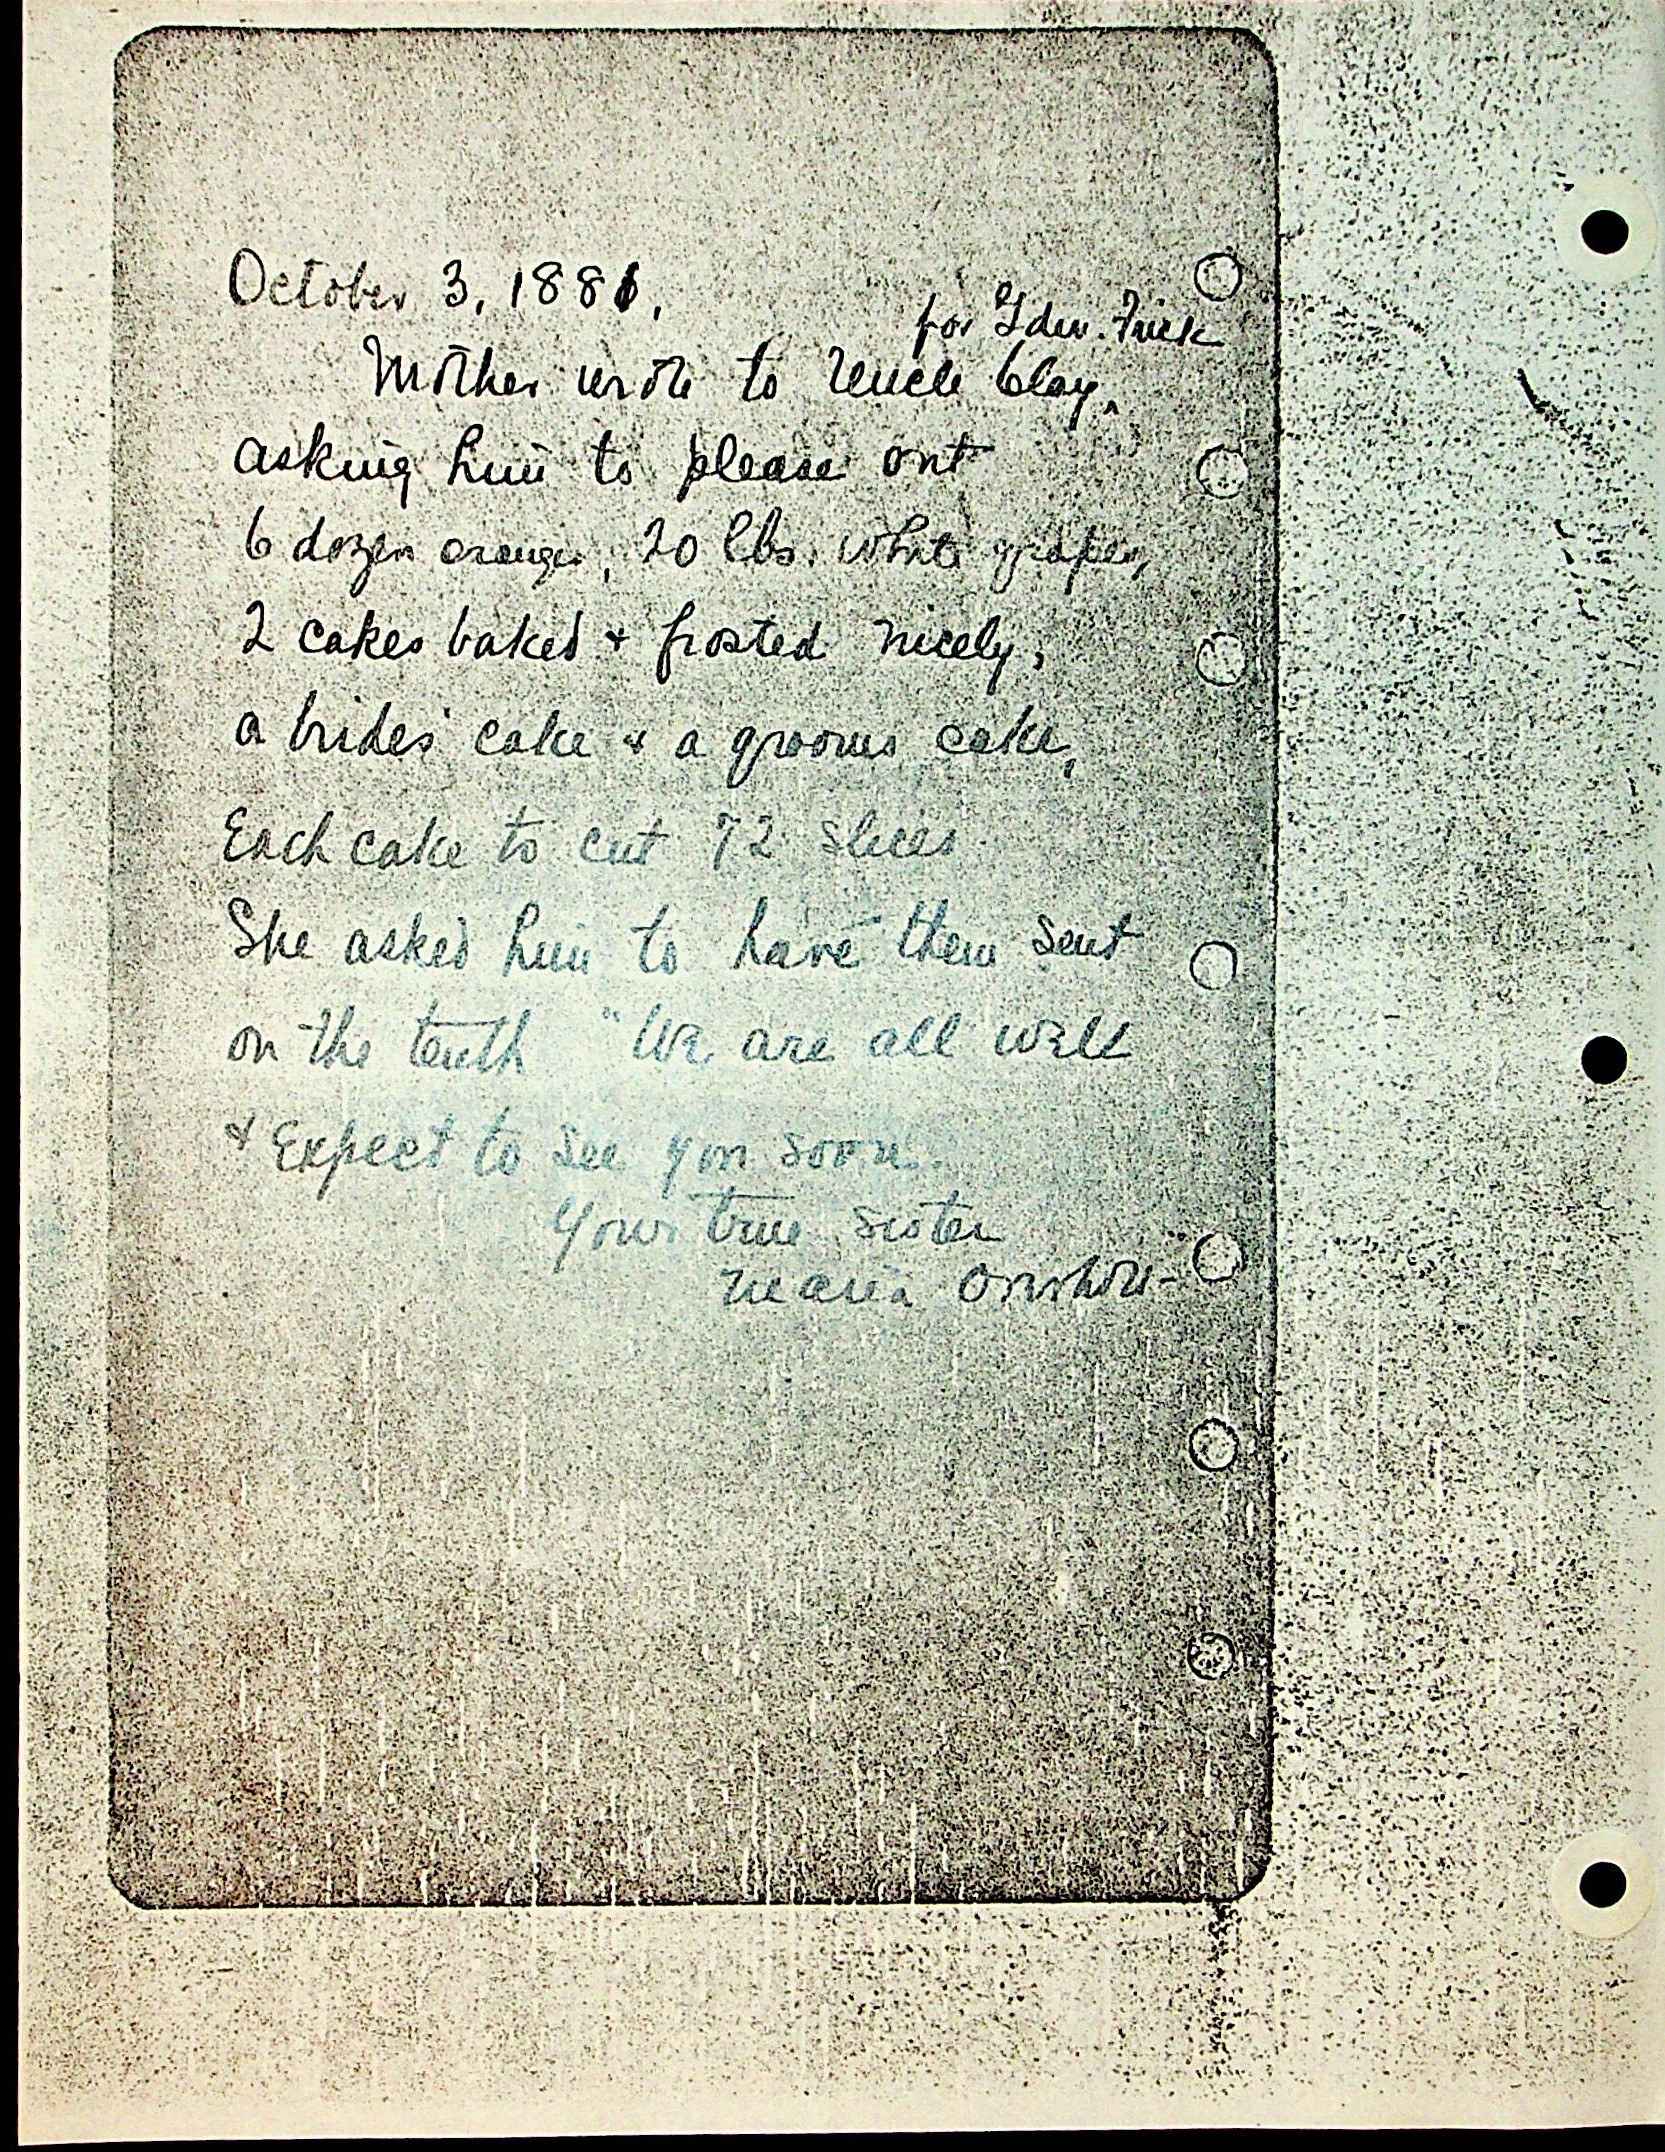 October 3, 1881.
for Edw. Frick
Mother wrote to Uncle Clay,
asking him to please
6 dozen oranges, 20 lbs. white grapes,
2 cakes baked + frosted nicely,
a brides' cake + a grooms cake,
Each cake to cut 72 slices
She asked him to have them sent
on the tenth "We are all well
+ Expect to see you soon.
Your true sister
Maria